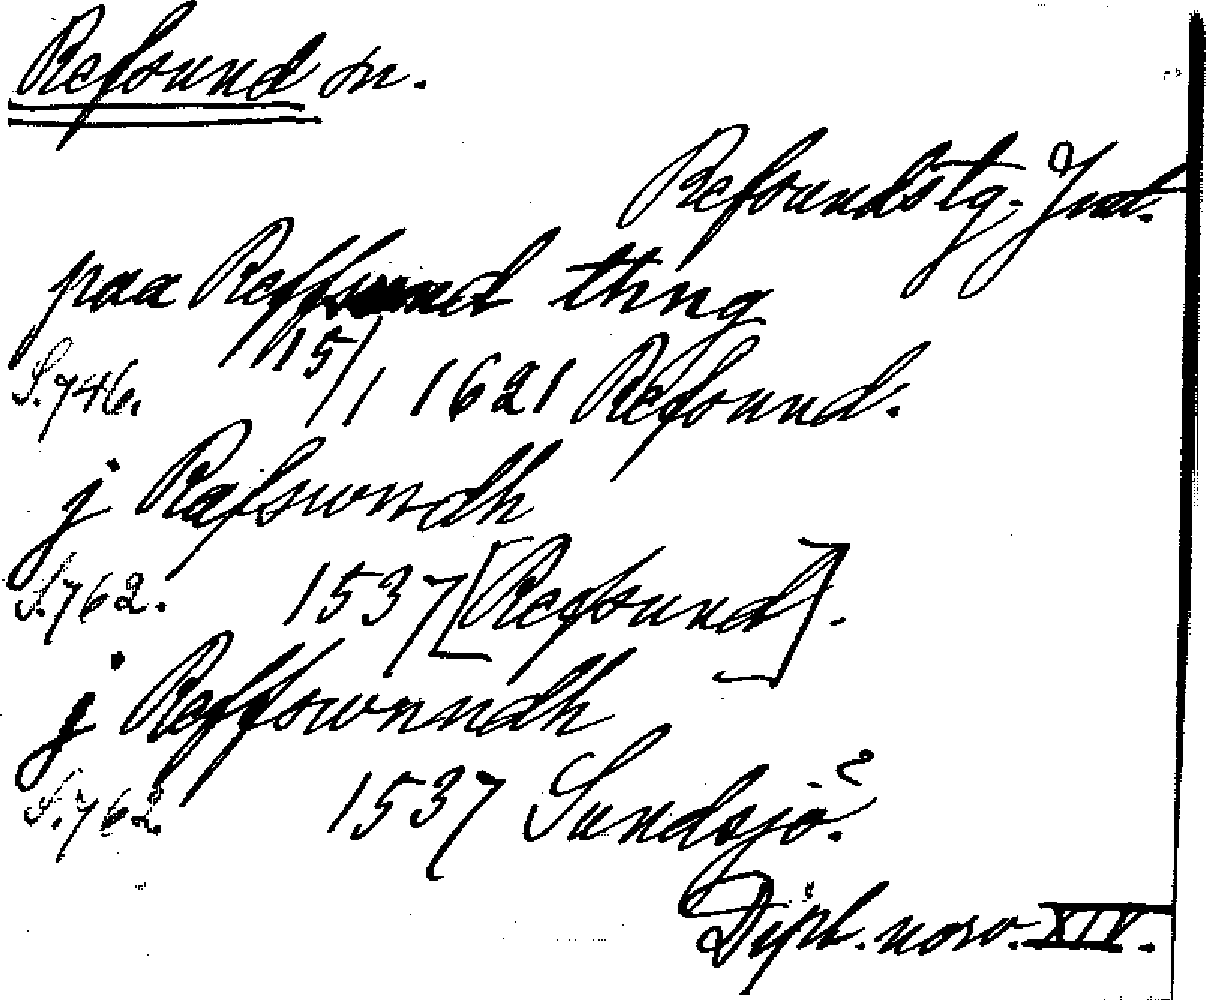 Refsund sn.
Refsunds tg. Jmt.
paa Reffsund thng
S. 746. 15/1 1621 Refsund.
j Rafswndh
S. 762. 1537 [Refsund].
j Reffswnndh
S. 762 1537 Sundsjö?.
Dipl. norv. XIV.